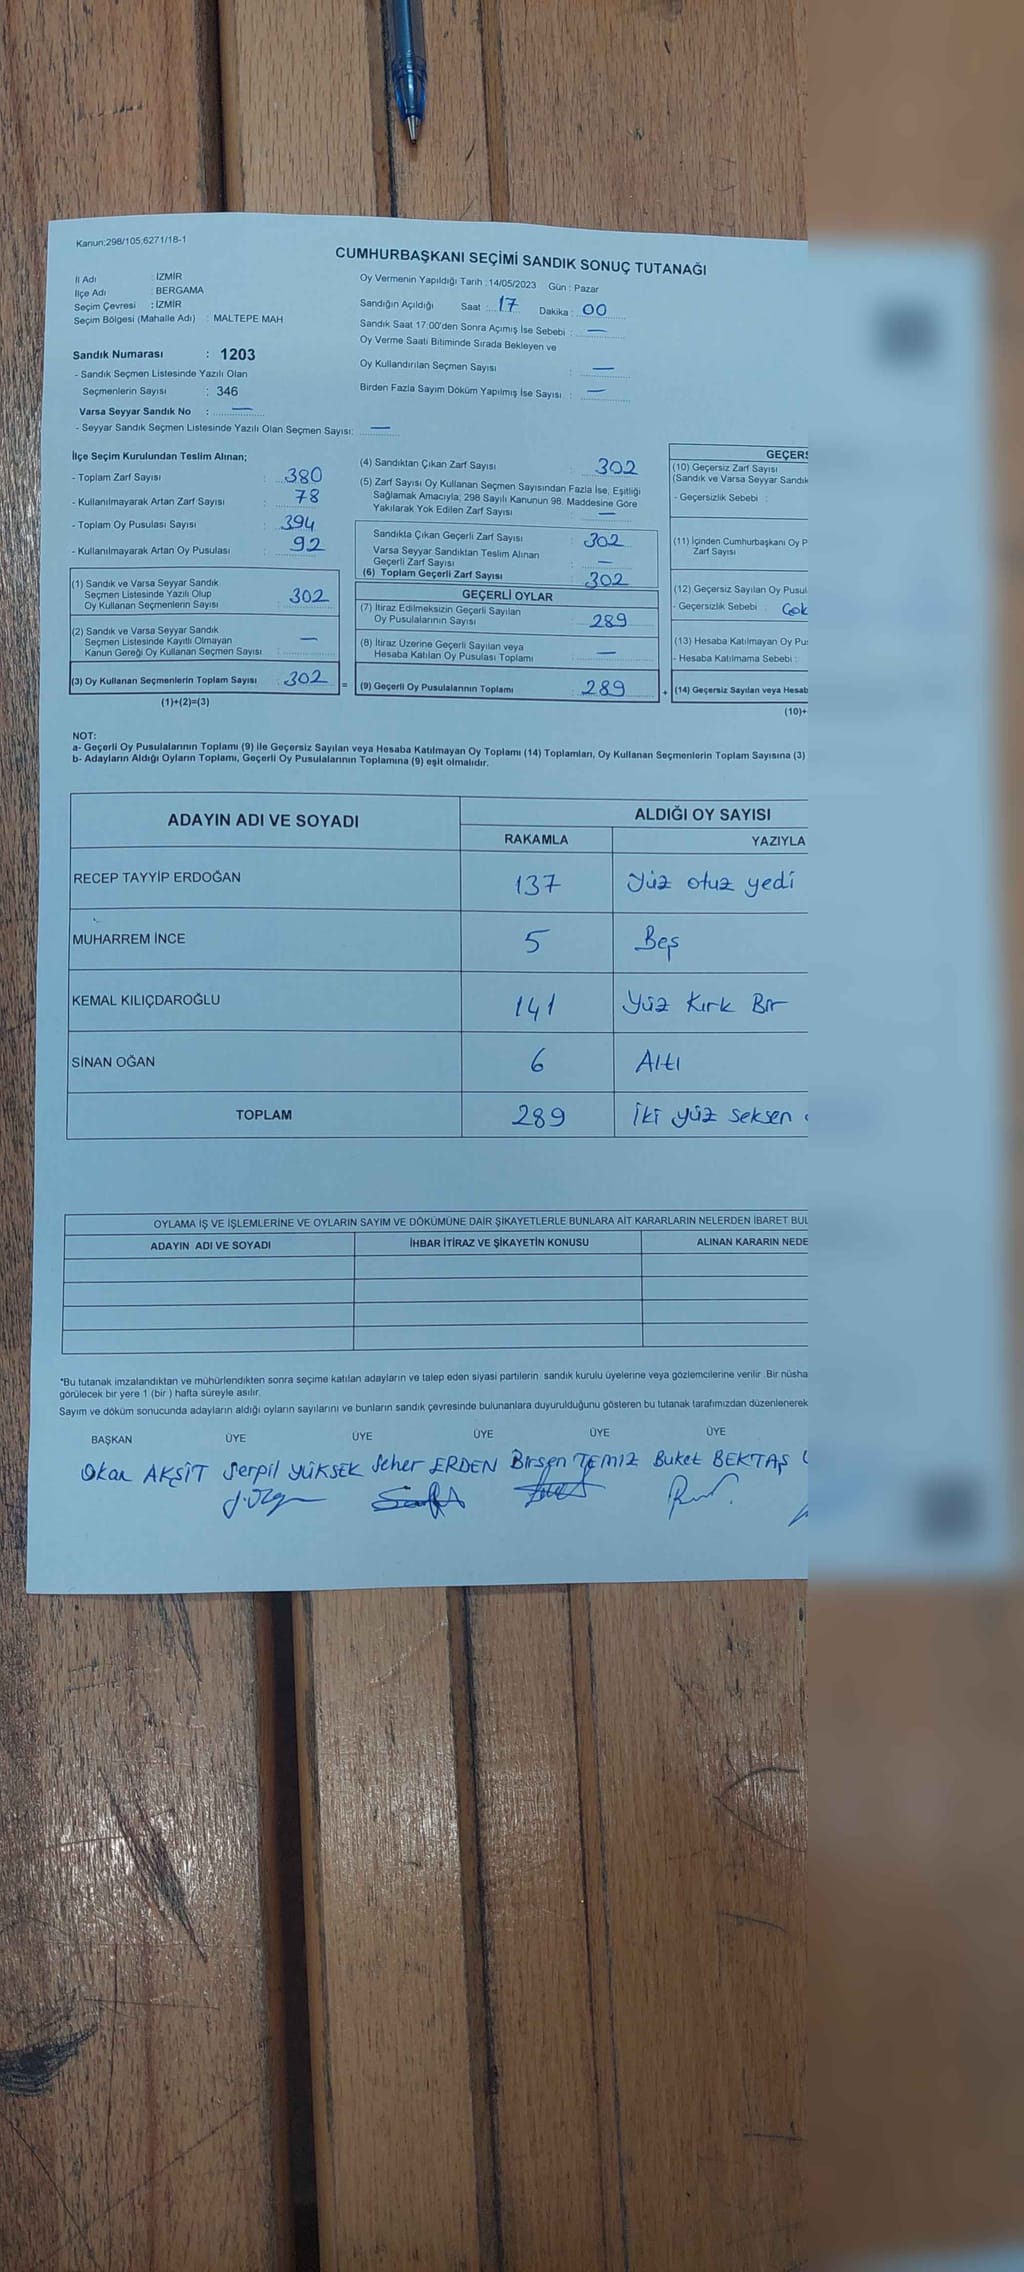 Kanun;298/105;6271/18-1
CUMHURBAŞKANI SEÇİMİ SANDIK SONUÇ TUTANAĞI
İl Adı : İZMİR
İlçe Adı : BERGAMA
Seçim Çevresi : İZMİR
Seçim Bölgesi (Mahalle Adı) : MALTEPE MAH
Oy Vermenin Yapıldığı Tarih : 14/05/2023 Gün : Pazar
Sandığın Açıldığı Saat : 17 Dakika : 00
Sandık Saat 17:00'den Sonra Açımış İse Sebebi : —
Oy Verme Saati Bitiminde Sırada Bekleyen ve
Oy Kullandırılan Seçmen Sayısı : —
Birden Fazla Sayım Döküm Yapılmış İse Sayısı : —
Sandık Numarası : 1203
- Sandık Seçmen Listesinde Yazılı Olan
Seçmenlerin Sayısı : 346
Varsa Seyyar Sandık No : —
- Seyyar Sandık Seçmen Listesinde Yazılı Olan Seçmen Sayısı: —
İlçe Seçim Kurulundan Teslim Alınan;
- Toplam Zarf Sayısı : 380
- Kullanılmayarak Artan Zarf Sayısı : 78
- Toplam Oy Pusulası Sayısı : 394
- Kullanılmayarak Artan Oy Pusulası : 92
(1) Sandık ve Varsa Seyyar Sandık
Seçmen Listesinde Yazılı Olup
Oy Kullanan Seçmenlerin Sayısı : 302
(2) Sandık ve Varsa Seyyar Sandık
Seçmen Listesinde Kayıtlı Olmayan
Kanun Gereği Oy Kullanan Seçmen Sayısı : —
(3) Oy Kullanan Seçmenlerin Toplam Sayısı : 302 =
(1)+(2)=(3)
(4) Sandıktan Çıkan Zarf Sayısı : 302
(5) Zarf Sayısı Oy Kullanan Seçmen Sayısından Fazla İse, Eşitliği
Sağlamak Amacıyla, 298 Sayılı Kanunun 98. Maddesine Göre
Yakılarak Yok Edilen Zarf Sayısı : —
Sandıkta Çıkan Geçerli Zarf Sayısı : 302
Varsa Seyyar Sandıktan Teslim Alınan
Geçerli Zarf Sayısı : —
(6) Toplam Geçerli Zarf Sayısı : 302
GEÇERLİ OYLAR
(7) İtiraz Edilmeksizin Geçerli Sayılan
Oy Pusulalarının Sayısı : 289
(8) İtiraz Üzerine Geçerli Sayılan veya
Hesaba Katılan Oy Pusulası Toplamı : —
(9) Geçerli Oy Pusulalarının Toplamı : 289 +
GEÇERS
(10) Geçersiz Zarf Sayısı
(Sandık ve Varsa Seyyar Sandık
- Geçersizlik Sebebi :
(11) İçinden Cumhurbaşkanı Oy P
Zarf Sayısı
(12) Geçersiz Sayılan Oy Pusul
- Geçersizlik Sebebi : Çok
(13) Hesaba Katılmayan Oy Pu
- Hesaba Katılmama Sebebi :
(14) Geçersiz Sayılan veya Hesab
(10)+
NOT:
a- Geçerli Oy Pusulalarının Toplamı (9) ile Geçersiz Sayılan veya Hesaba Katılmayan Oy Toplamı (14) Toplamları, Oy Kullanan Seçmenlerin Toplam Sayısına (3)
b- Adayların Aldığı Oyların Toplamı, Geçerli Oy Pusulalarının Toplamına (9) eşit olmalıdır.
ADAYIN ADI VE SOYADI
ALDIĞI OY SAYISI
RAKAMLA YAZIYLA
RECEP TAYYİP ERDOĞAN 137 Yüz otuz yedi
MUHARREM İNCE 5 Beş
KEMAL KILIÇDAROĞLU 141 Yüz Kırk Bir
SİNAN OĞAN 6 Altı
TOPLAM 289 İki yüz seksen
OYLAMA İŞ VE İŞLEMLERİNE VE OYLARIN SAYIM VE DÖKÜMÜNE DAİR ŞİKAYETLERLE BUNLARA AİT KARARLARIN NELERDEN İBARET BUL
ADAYIN ADI VE SOYADI İHBAR İTİRAZ VE ŞİKAYETİN KONUSU ALINAN KARARIN NEDE
*Bu tutanak imzalandıktan ve mühürlendikten sonra seçime katılan adayların ve talep eden siyasi partilerin sandık kurulu üyelerine veya gözlemcilerine verilir .Bir nüsha
görülecek bir yere 1 (bir ) hafta süreyle asılır.
Sayım ve döküm sonucunda adayların aldığı oyların sayılarını ve bunların sandık çevresinde bulunanlara duyurulduğunu gösteren bu tutanak tarafımızdan düzenlenerek
BAŞKAN ÜYE ÜYE ÜYE ÜYE ÜYE
Okan AKŞİT Serpil YÜKSEK Seher ERDEN Birsen TEMİZ Buket BEKTAŞ